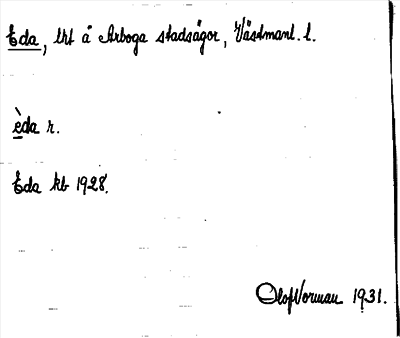 Eda, lht å Arboga stadsägor, Västmanl. l.
èda r.
Eda kb 1928.
Olof Vorman 1931.